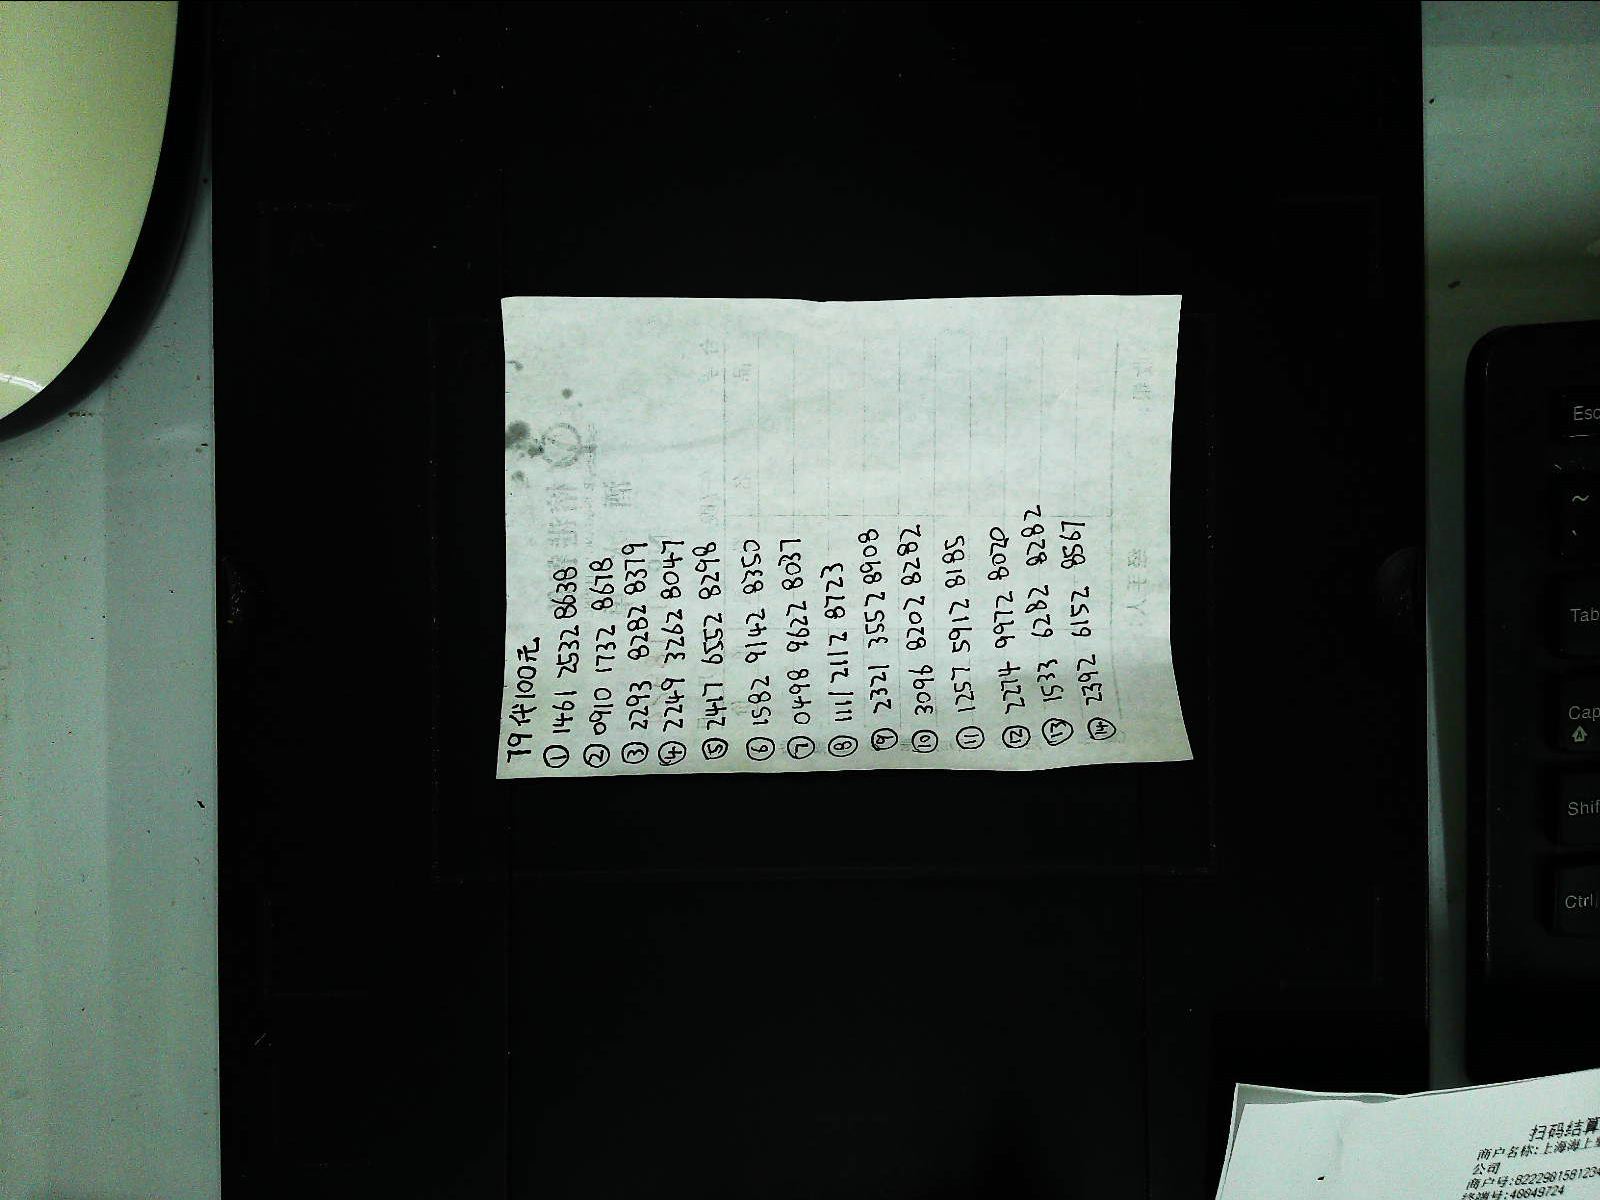 79代100元
① 1461 2532 8638
② 0910 1732 8678
③ 2293 8282 8379
④ 2249 3262 8047
⑤ 2417 6552 8298
⑥ 1582 9142 8350
⑦ 0498 9622 8037
⑧ 1111 2112 8723
⑨ 2321 3552 8908
⑩ 3096 8202 8282
⑪ 1257 5912 8185
⑫ 2274 9972 8020
⑬ 1533 6282 8282
⑭ 2392 6152 8567
Esc
~
Tab
Cap
Shif
Ctrl
扫码结算
商户名称:上海海上
公司
商户号:8222901581234
终端号:40049724